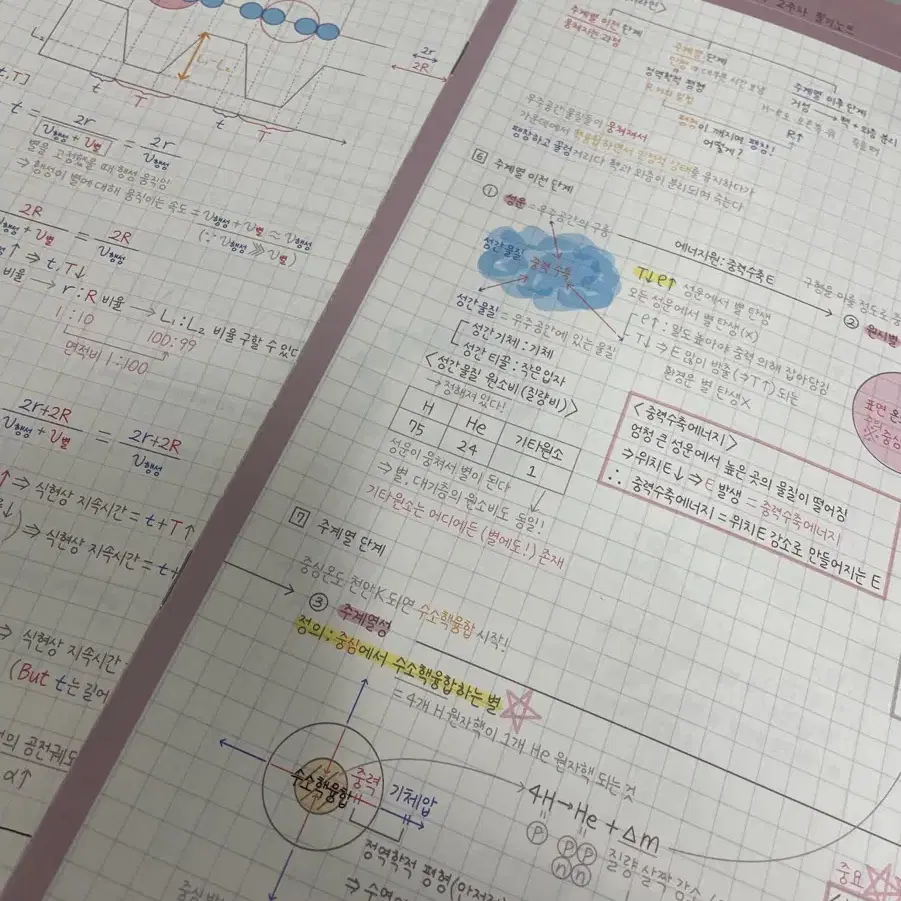 L₂
L₁-L₂
t
T
t
T
2r
2R
t = 2r / (v행성 + v별) = 2r / v행성
별을 고정했을 때 행성 움직임
⇒ 행성이 별에 대해 움직이는 속도 = v행성 + v별 ≈ v행성
(∵ v행성 ⋙ v별)
2R / (v행성 + v별) = 2R / v행성
↑ ⇒ t, T↓
비율 → r : R 비율 → L₁ : L₂ 비율 구할 수 있다
1 : 10
100 : 99
면적비 1 : 100
2r+2R / (v행성 + v별) = 2r+2R / v행성
⇒ 식현상 지속시간 = t+T ↑
⇒ 식현상 지속시간 = t+
⇒ 식현상 지속시간
(But t는 길어
공전궤도
α↑
2주차 필기노트
주계열 이전 단계
뭉쳐지는 과정
주계열 단계
정역학적 평형
주계열 이후 단계
거성 → 핵 + 외층 분리
R↑
평형이 깨지면 팽창!
어떻게?
우주공간 물질들이 뭉쳐져서
가운데에서 핵융합하면서 안정적 상태를 유지하다가
팽창하고 꿀렁거리다 핵과 외층이 분리되며 죽는다
6 주계열 이전 단계
① 성운 = 우주공간의 구름
성간물질
중력수축
에너지원 : 중력수축E
②
원시별
T↓ ρ↑ 성운에서 별 탄생
모든 성운에서 별 탄생 (X)
ρ↑ : 밀도 높아야 중력 의해 잡아당김
T↓ ⇒ E 많이 방출 (⇒T↑) 되는
환경은 별 탄생X
성간물질 = 우주공간에 있는 물질
성간 기체 : 기체
성간 티끌 : 작은입자
<성간물질 원소비 (질량비)>
→ 정해져 있다!
H He 기타원소
75 24 1
성운이 뭉쳐서 별이 된다
⇒ 별, 대기층의 원소비도 동일!!
기타원소는 어디에든 (별에도!) 존재
<중력수축에너지>
엄청 큰 성운에서 높은 곳의 물질이 떨어짐
⇒ 위치E↓ ⇒ E 발생 = 중력수축에너지
∴ 중력수축에너지 = 위치E 감소로 만들어지는 E
표면 온
7 주계열 단계
중심온도 천만K 되면 수소핵융합 시작!
③ 주계열성
정의 : 중심에서 수소핵융합하는 별
= 4개 H 원자핵이 1개 He 원자핵 되는 것
수소핵융합
중력
기체압
4H → He + Δm
P
P P
n n
질량 살짝 감소
정역학적 평형
중요